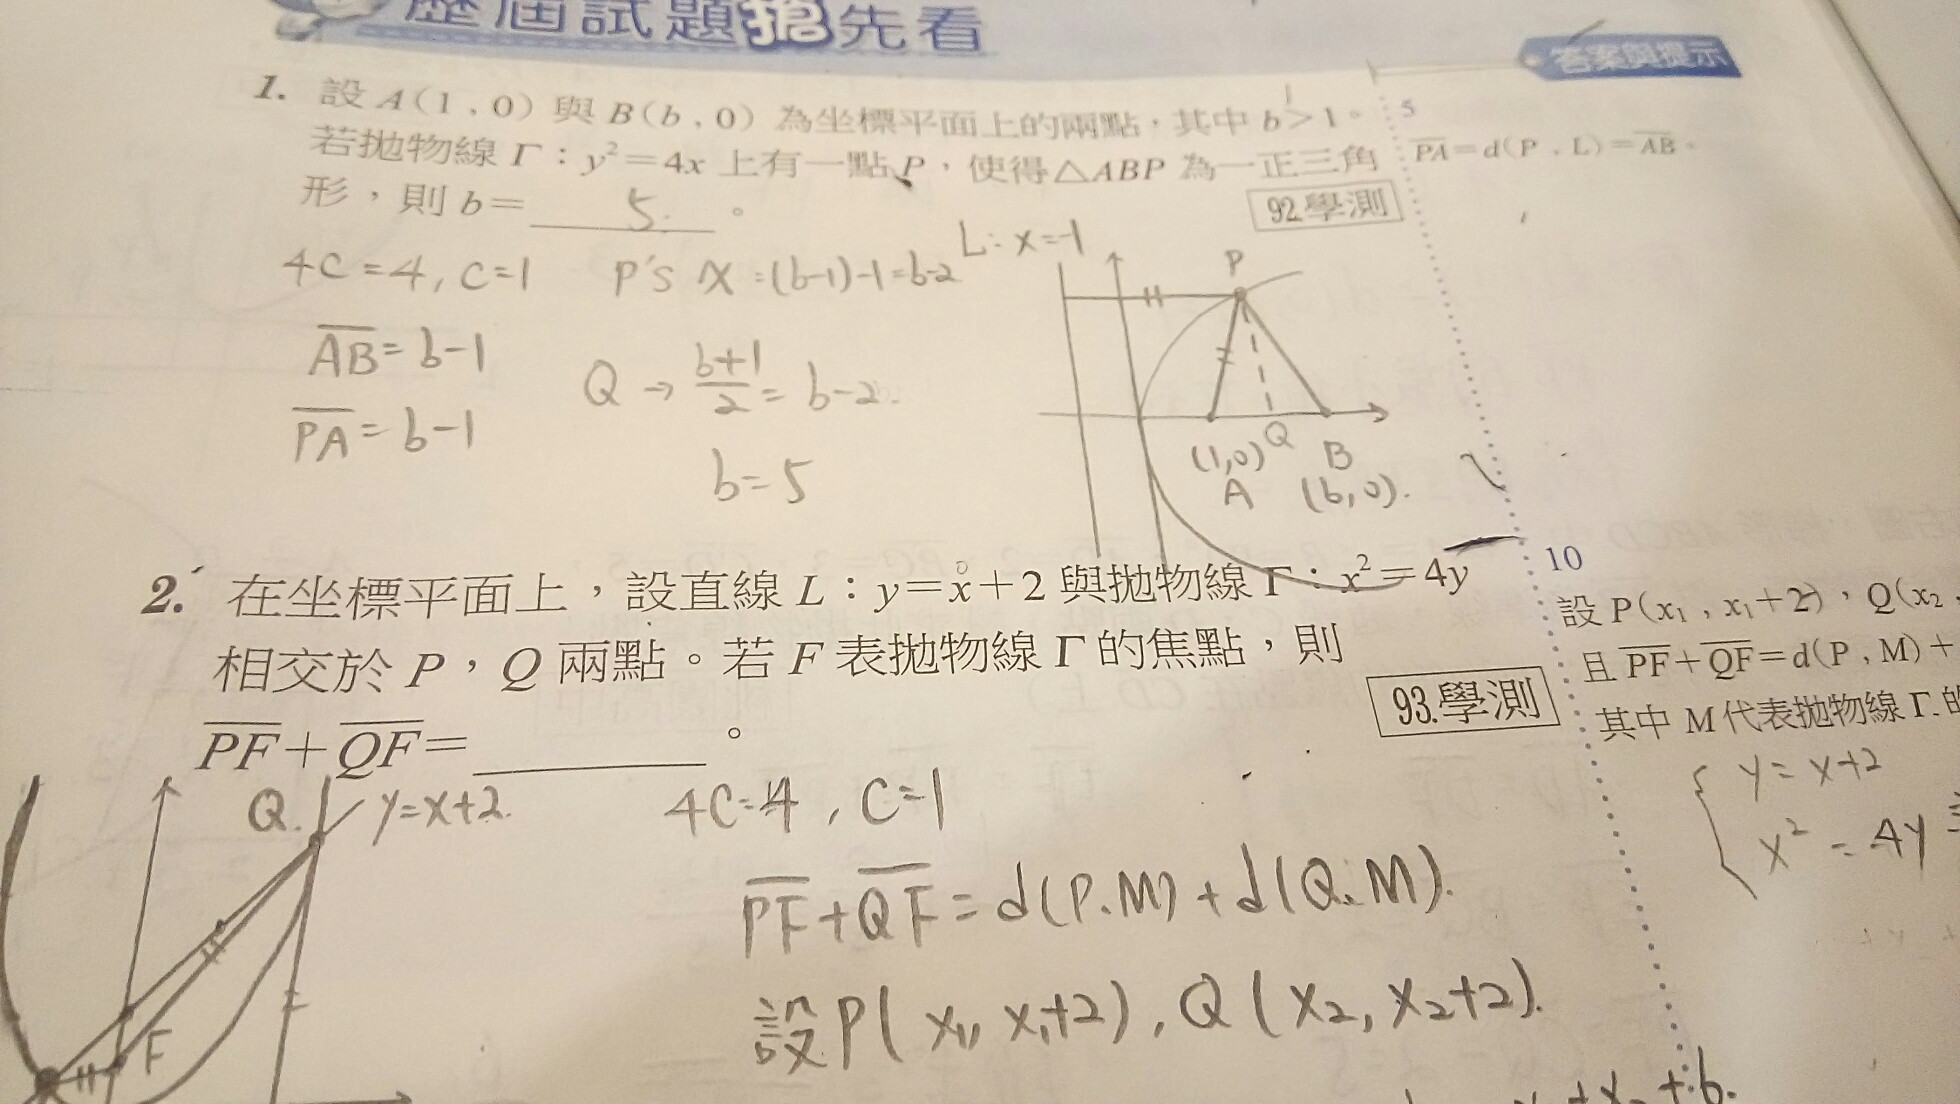 歷屆試題搶先看
答案與提示
1. 設 A(1,0) 與 B(b,0) 為坐標平面上的兩點，其中 b>1。
若拋物線 Γ：y²=4x 上有一點 P，使得△ABP 為一正三角
形，則 b= 5. 。
92.學測
5
PA=d(P,L)=AB。
4C=4, C=1
P's X=(b-1)-1=b-2
L: x=-1
AB=b-1
PA=b-1
Q→ b+1/2 = b-2.
b=5
P
(1,0) Q B
A (b,0).
2. 在坐標平面上，設直線 L：y=x+2 與拋物線 Γ：x²=4y
相交於 P，Q 兩點。若 F 表拋物線 Γ 的焦點，則
PF+QF= 。
93.學測
10
設 P(x₁,x₁+2)，Q(x₂,
且 PF+QF=d(P,M)+
其中 M代表拋物線 Γ 的
y=x+2
x²=4y
Q. y=x+2.
F
4C=4, C=1
PF+QF=d(P.M)+d(Q.M).
設P(x₁,x₁+2), Q(x₂,x₂+2).